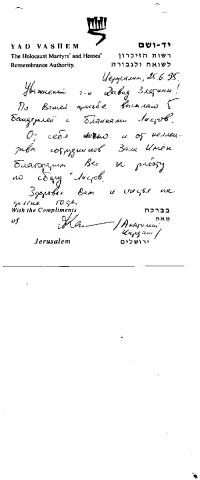 YAD VASHEM
The Holocaust Martyrs' and Heroes'
Remembrance Authority.
יד-ושם
רשות הזיכרון
לשואה ולגבורה
Иерусалим, 25.6.95.
Уважаемый г-н Давид Злотник!
По Вашей просьбе высылаю 5
бандеролей с бланками Листов.
От себя лично и от
сотрудников Зала Имён
благодарим Вас за работу
по сбору Листов.
Здоровья Вам и счастья на
долгие годы.
With the Compliments
of
בברכה
מאת
/Анатолий
Jerusalem
ירושלים